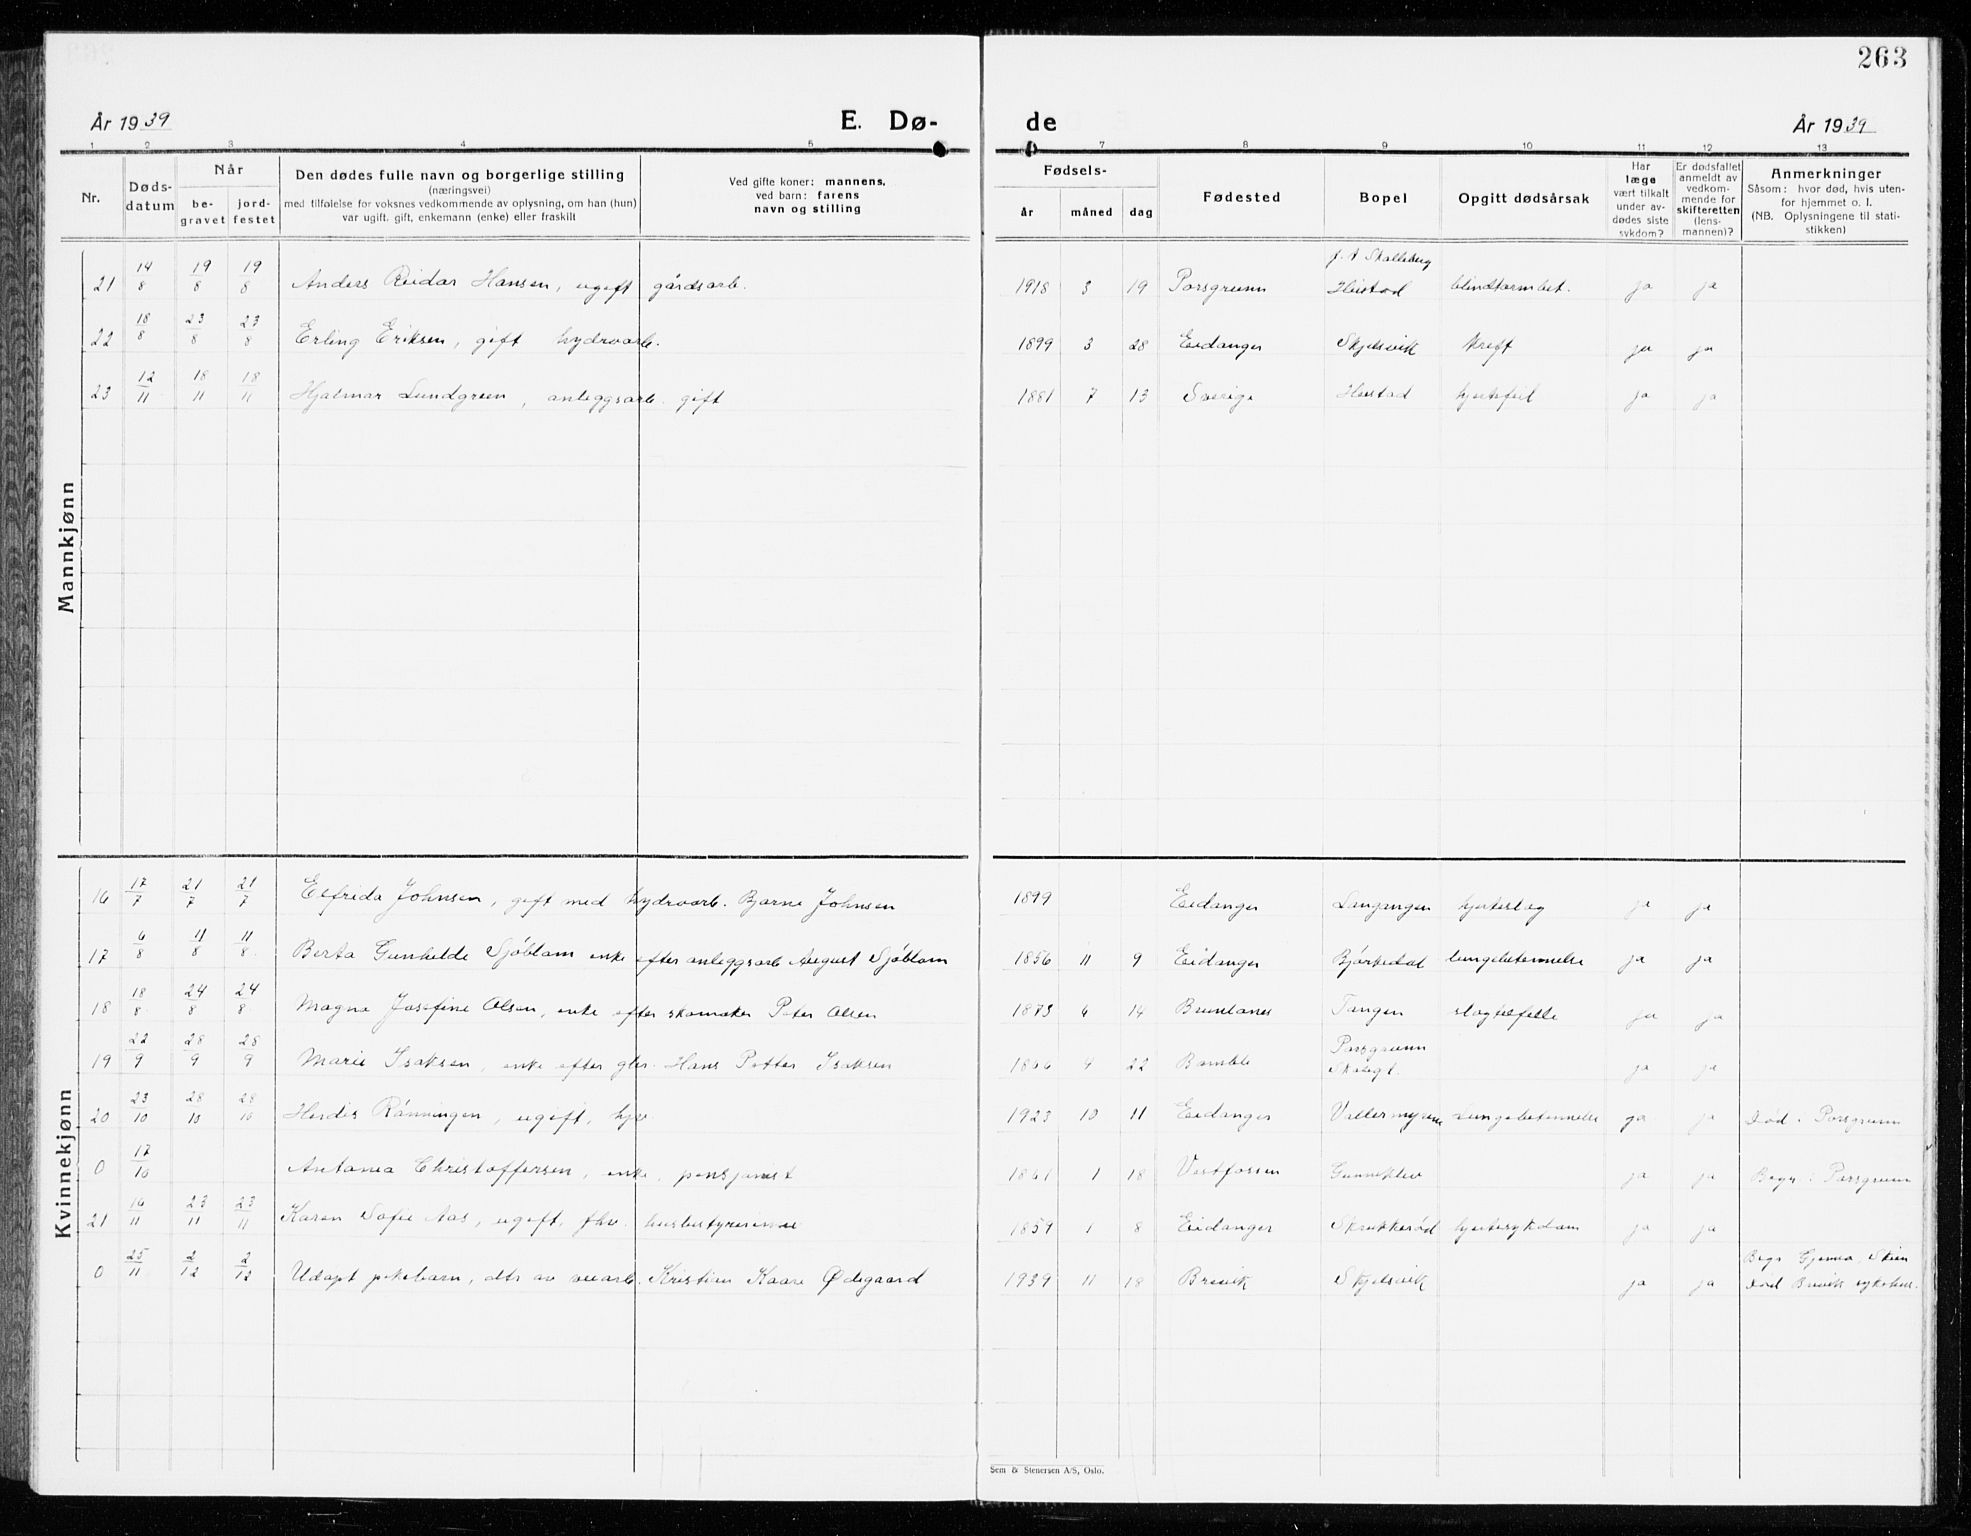 263
År 1939 E. Dø- de År 1939
1 2 3 4 5 7 8 9 10 11 12 13
Nr.
Døds-
datum
Når
be-
gravet
jord-
festet
Den dødes fulle navn og borgerlige stilling
(næringsvei)
med tilføielse for voksnes vedkommende av oplysning, om han (hun)
var ugift, gift, enkemann (enke) eller fraskilt
Ved gifte koner: mannens,
ved barn: farens
navn og stilling
Fødsels-
år måned dag
Fødested
Bopel
Opgitt dødsårsak
Har
læge
vært tilkalt
under av-
dødes siste
sykdom?
Er dødsfallet
anmeldt av
vedkom-
mende for
skifteretten
(lens-
mannen)?
Anmerkninger
Såsom: hvor død, hvis uten-
for hjemmet o. l.
(NB. Oplysningene til stati-
stikken)
Mannkjønn
21 14/8 19/8 19/8 Anders Reidar Hansen, ugift gårdsarb. 1918 3 19 Porsgrunn Heistad blindtarmbet. ja ja
22 18/8 23/8 23/8 Erling Eriksen, gift hydroarb. 1899 3 28 Eidanger Skjelsvik kreft ja ja
23 12/11 18/11 18/11 Hjalmar Lundgreen, anleggsarb. gift 1881 7 13 Sverige Heistad hjertefeil ja ja
Kvinnekjønn
16 17/7 21/7 21/7 Elfrida Johnsen, gift med hydroarb. Bjarne Johnsen 1899 Eidanger Langangen hjerteslag ja ja
17 6/8 11/8 11/8 Berta Gunhilde Sjöblom enke efter anleggsarb August Sjöblom 1856 11 9 Eidanger Bjørkedal lungebetennelse ja ja
18 18/8 24/8 24/8 Magna Josefine Olsen, enke efter skomaker Peter Olsen 1873 6 14 Brunlanes Tangen slagtilfelle ja ja
19 22/9 28/9 28/9 Marie Isaksen, enke efter Hans Petter Isaksen 1866 4 22 Bamble Porsgrunn ja ja
20 23/10 28/10 28/10 Herdis Rönningen, ugift, hjv. 1923 10 11 Eidanger Vallermyrene Lungebetennelse ja ja død i Porsgrunn
0 17/10 Antonia Christoffersen, enke, pensjonist 1861 1 18 Vestfossen Gunneklev ja ja Begr. i Porsgrunn
21 16/11 23/11 23/11 Karen Sofie Aas, ugift, fhv. husbestyrerinne 1859 1 8 Eidanger Skrukkerød hjertesykdom ja ja
0 25/11 2/12 2/12 Udøpt pikebarn, dtr av Kristian Kaare Ødegaard 1939 11 18 Brevik Skjelsvik ja ja Begr Gjerpen, Skien
død Brevik sykehus.
Sem & Stenersen A/S, Oslo.